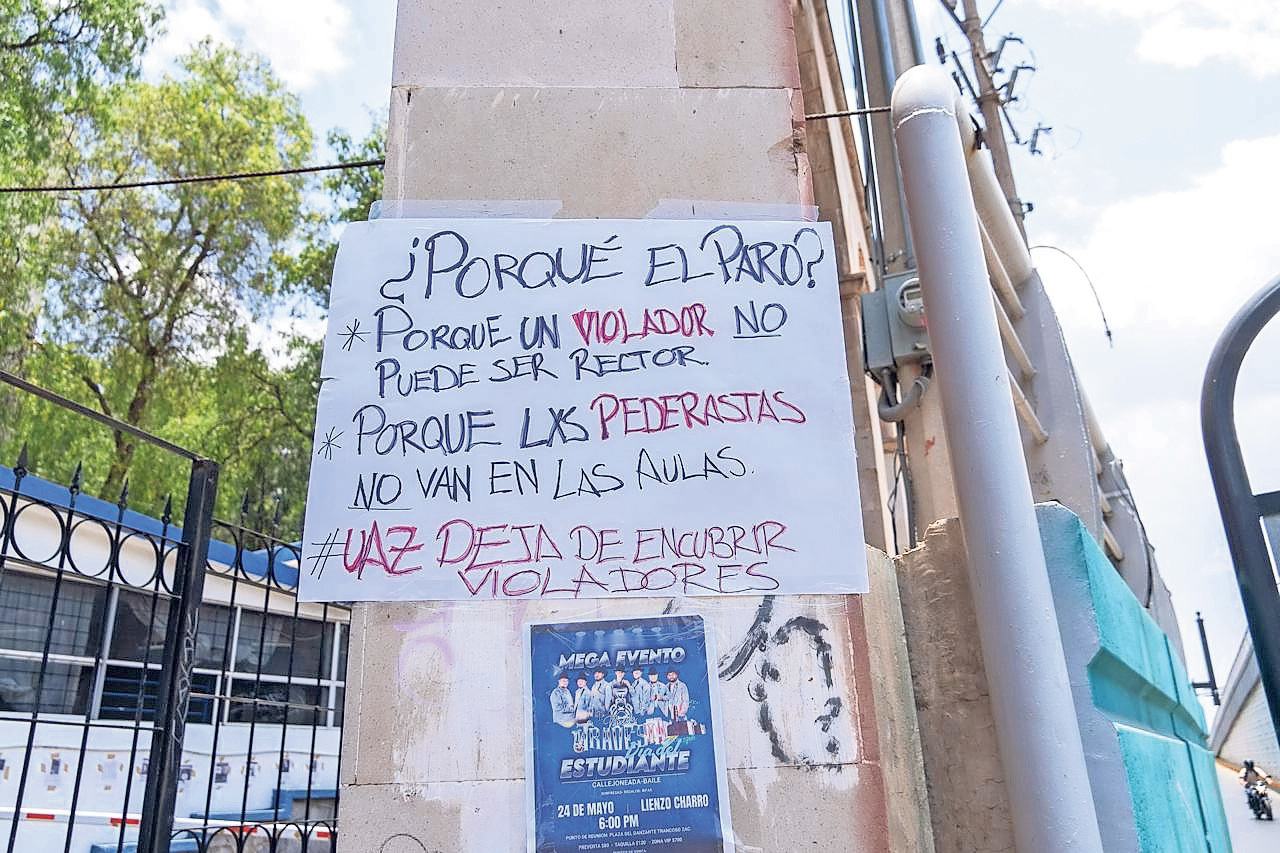 ¿PORQUÉ EL PARO?
* PORQUE UN VIOLADOR NO
PUEDE SER RECTOR.
* PORQUE LXS PEDERASTAS
NO VAN EN LAS AULAS.
#UAZ DEJA DE ENCUBRIR
VIOLADORES
MEGA EVENTO
Día del
ESTUDIANTE
CALLEJONEADA-BAILE
24 DE MAYO | LIENZO CHARRO
6:00 PM
PUNTO DE REUNION: PLAZA DEL DANZANTE TRANCOSO ZAC.
PREVENTA $80 - TAQUILLA $120 - ZONA VIP $700